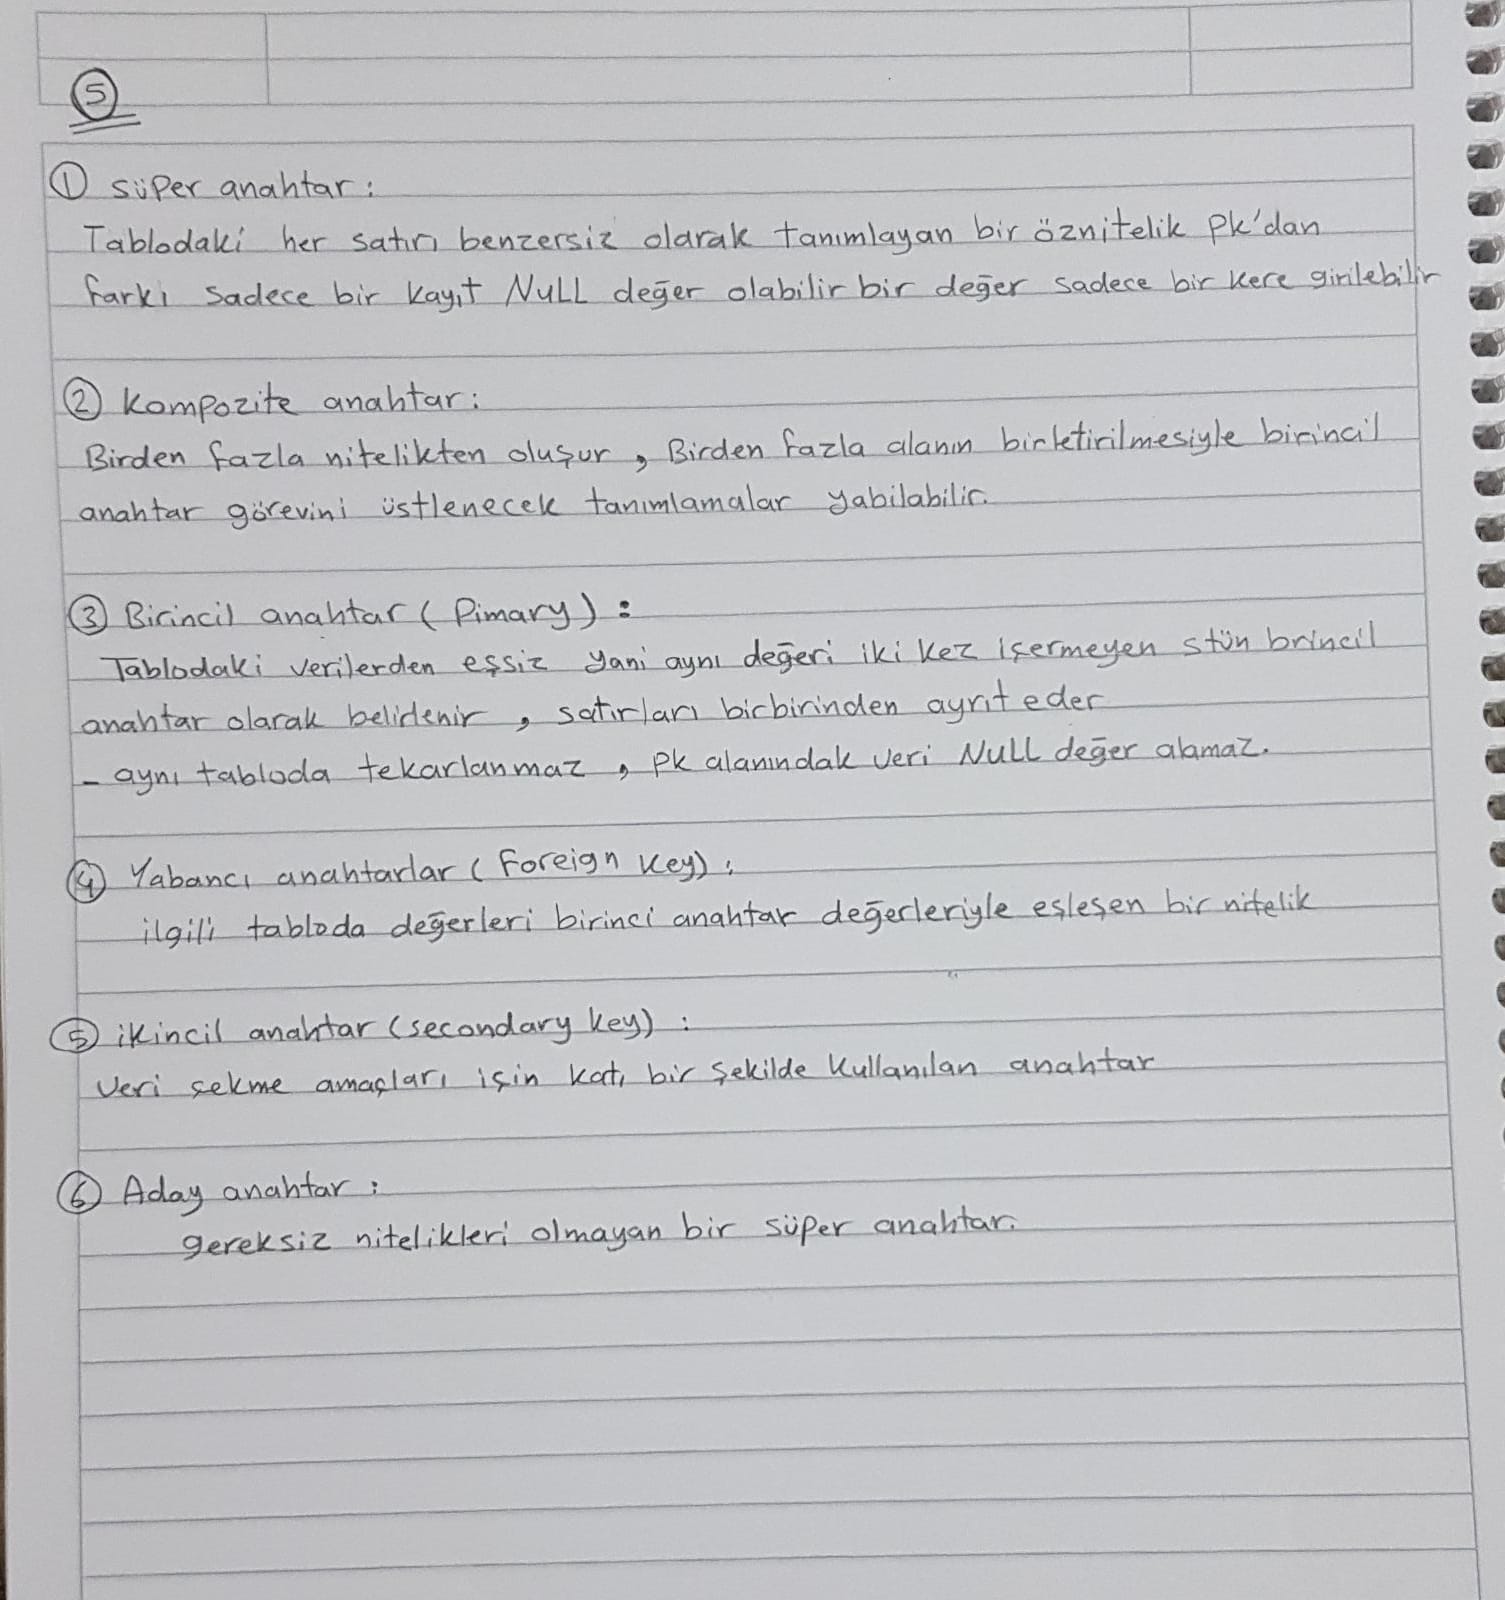 5
① süper anahtar:
Tablodaki her satırı benzersiz olarak tanımlayan bir öznitelik Pk'dan
farkı sadece bir kayıt NULL değer olabilir bir değer sadece bir kere girilebilir
② Kompozite anahtar:
Birden fazla nitelikten oluşur, Birden fazla alanın birletirilmesiyle birincil
anahtar görevini üstlenecek tanımlamalar yabilabilir.
③ Birincil anahtar (Pimary):
Tablodaki verilerden eşsiz yani aynı değeri iki kez içermeyen stün brincil
anahtar olarak belirlenir, satırları birbirinden ayrıt eder
- aynı tabloda tekarlanmaz, Pk alanındak veri NULL değer alamaz.
④ Yabancı anahtarlar (Foreign Key):
ilgili tabloda değerleri birinci anahtar değerleriyle eşleşen bir nitelik
⑤ ikincil anahtar (secondary key):
Veri çekme amaçları için katı bir şekilde kullanılan anahtar
⑥ Aday anahtar:
gereksiz nitelikleri olmayan bir süper anahtar.